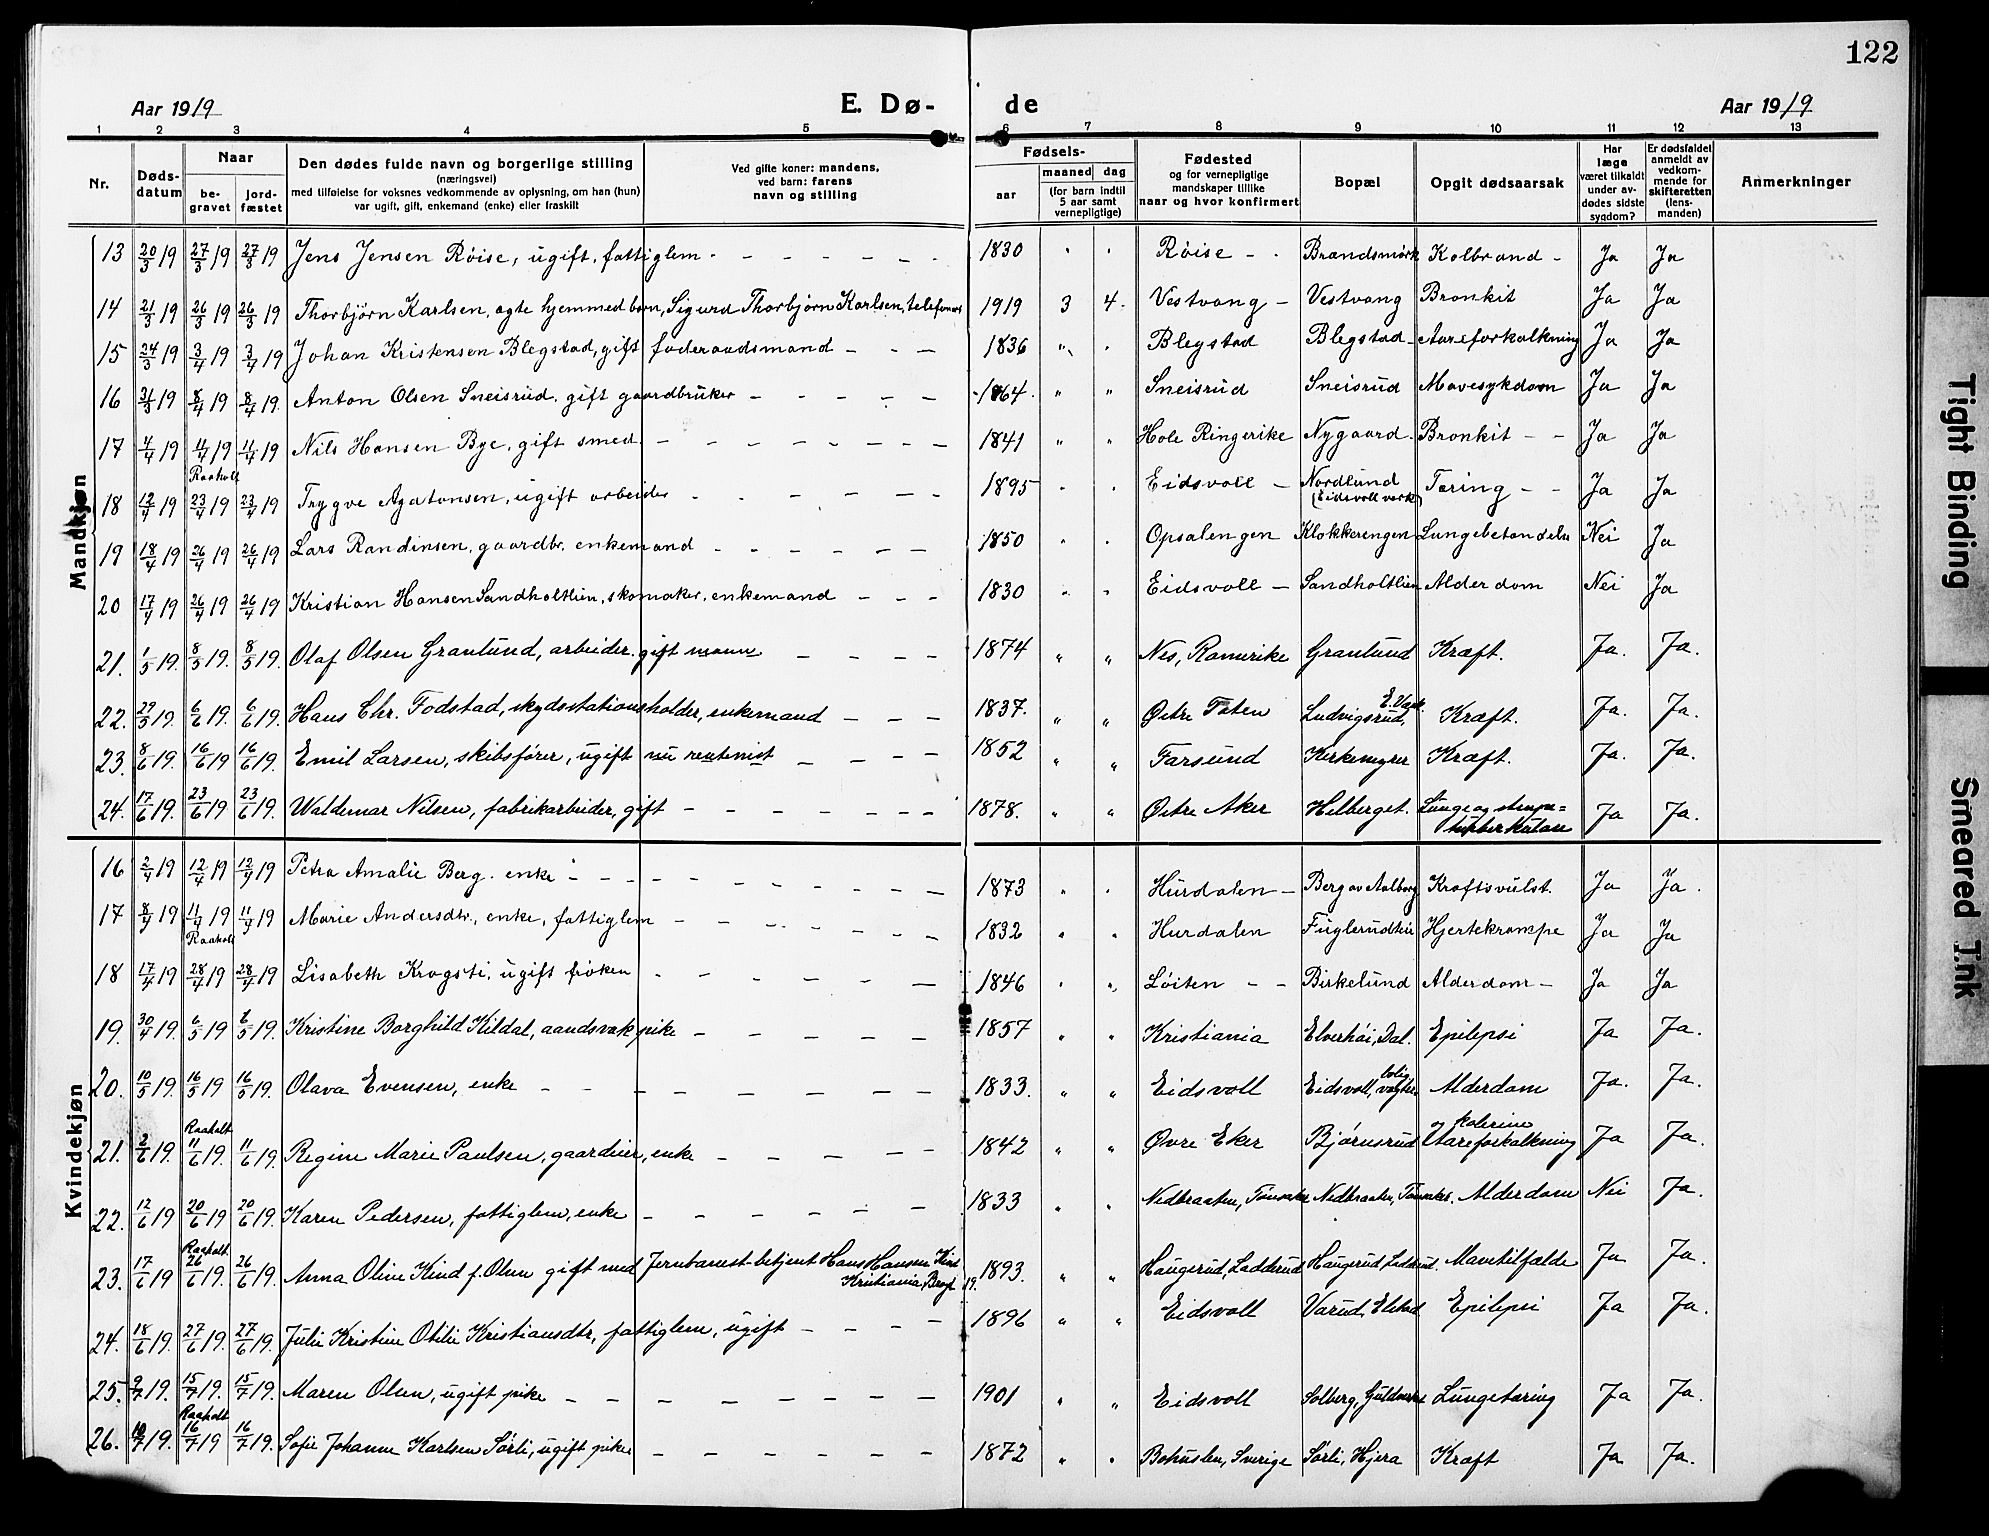 122
Aar 1919 E. Dø- de Aar 1919
1 2 3 4 5 6 7 8 9 10 11 12 13
Nr. Døds-datum Naar be-gravet jord-fæstet Den dødes fulde navn og borgerlige stilling (næringsvei) med tilføielse for voksnes vedkommende av oplysning, om han (hun) var ugift, gift, enkemand (enke) eller fraskilt Ved gifte koner: mandens, ved barn: farens navn og stilling Fødsels- aar maaned dag (for barn indtil 5 aar samt vernepligtige) Fødested og for vernepligtige mandskaper tillike naar og hvor konfirmert Bopæl Opgit dødsaarsak Har læge været tilkaldt under av-dødes sidste sygdom? Er dødsfaldet anmeldt av vedkom-mende for skifteretten (lens-manden) Anmerkninger
Mandkjøn
13 20/3 19 27/3 19 27/3 19 Jens Jensen Røise, ugift, fattiglem - - - - - - 1830 " " Røise - Brandsmørk Kolbrand - Ja Ja
14 21/3 19 26/3 19 26/3 19 Thorbjörn Karlsen, ægte hjemmedbarn, Sigurd Thorbjörn Karlsen, 1919 3 4 Vestvang - Vestvang Bronkit Ja Ja
15 24/3 19 3/4 19 3/4 19 Johan Kristensen Blegstad, gift føderaadsmand - - - 1836 " " Blegstad Blegstad - Aareforkalkning Ja Ja
16 31/3 19 8/4 19 8/4 19. Anton Olsen Sneisrud, gift gaardbruker - - - - - 1864 " " Sneisrud Sneisrud Mavesykdom Ja Ja
17 4/4 19 11/4 19 11/4 19 Nils Hansen Bye, gift smed - - - - - - - 1841 " " Hole Ringerike Nygaard - Bronkit - - Ja Ja
18 12/4 19 Raaholt 23/4 19 23/4 19 Trygve Agatonsen, ugift arbeider - - - - - - 1895 " " Eidsvoll - Nordlund (Eidsvoll verk) Tæring - - Ja Ja
19 18/4 19 26/4 19 26/4 19 Lars Randinsen, gaardbr. enkemand - - - - - 1850 " " Opsalengen Klokkerengen Lungebetændelse Nei Ja
20 17/4 19 26/4 19 26/4 19 Kristian Hansen Sandholtlien, skomaker, enkemand - - - 1830 " " Eidsvoll - Sandholtlien Alderdom Nei Ja
21. 1/5 19. 8/5 19. 8/5 19. Olaf Olsen Granlund, arbeider, gift mann - - - - 1874 " " Nes, Romerike Granlund Kræft. Ja. Ja.
22. 29/5 19. 6/6 19. 6/6 19. Hans Chr. Fodstad, skydsstationsholder, enkemand - - - 1837. " " Østre Toten Ludvigsrud, Kræft. Ja. Ja.
23. 8/6 19. 16/6 19 16/6 19. Emil Larsen, skibsfører, ugift nu rentenist - - - - 1852 " " Farsund Kirkemyrer Kræft. Ja. Ja.
24. 17/6 19. 23/6 19 23/6 19. Waldemar Nilsen, fabrikarbeider, gift - - - - - - 1878. " " Østre Aker Helberget. Lunge og strupe=tuberkulose Ja Ja.
Kvindekjøn
16 2/4 19 12/4 19 12/4 19 Petra Amalie Berg, enke - - - - - - - - 1873 " " Hurdalen - Berg av Aalborg Kræftsvulst. Ja Ja.
17 8/4 19 11/4 19 Raaholt 11/4 19 Marie Andersdtr., enke, fattiglem - - - - - - 1832 " " Hurdalen Fuglerudhei Hjertekrampe Ja Ja
18 17/4 19 28/4 19 28/4 19 Lisabeth Krogsti, ugift frøken - - - - - - 1846 " " Løiten - - Birkelund Alderdom - Ja Ja
19. 30/4 19. 6/5 19 6/5 19. Kristine Borghild Kildal, aandsvak pike - - - - - 1857 " " Kristiania Elverhøi, Dal. Epilepsi Ja Ja.
20. 10/5 19. 16/5 19 16/5 19. Olava Evensen, enke - - - - - - - - 1833. " " Eidsvoll Eidsvoll, Alderdom Ja. Ja.
21. 2/6 19. Raaholt 11/6 19. 11/6 19. Regine Marie Paulsen, gaardeier, enke - - - - - 1842 " " Øvre Eker Bjørnsrud Aareforkalkning og kolerine Ja Ja.
22. 12/6 19. 20/6 19 20/6 19. Karen Pedersen, fattiglem, enke - - - - - - 1833 " " Nedbraaten, Tønsaker Nedbraaten, Tønsaker. Alderdom Nei Ja.
23. 17/6 19 Raaholt 26/6 19. 26/6 19. Anna Oline Kind f. Olsen gift med Jernbanest.betjent Hans Hansen Kind Kristiania, 1893. " " Haugerud, Ladderud Haugerud, Ladderud. Mavetilfælde Ja Ja.
24. 18/6 19. 27/6 19. 27/6 19. Julie Kristine Otilie Kristiansdtr, fattiglem, ugift - - - - 1896 " " Eidsvoll Varud, Elstad Epilepsi Ja Ja.
25. 9/7 19. 15/7 19. 15/7 19. Maren Olsen, ugift pike - - - - - - - 1901 " " Eidsvoll Solberg, Guldverket Lungetæring Ja Ja.
26. 10/7 19. Raaholt 16/7 19 16/7 19. Sofie Johanne Karlsen Sørli, ugift pike - - - - - - 1872 " " Bohuslen, Sverige Sørli, Hjera Kræft Ja Ja.
Tight Binding
Smeared Ink